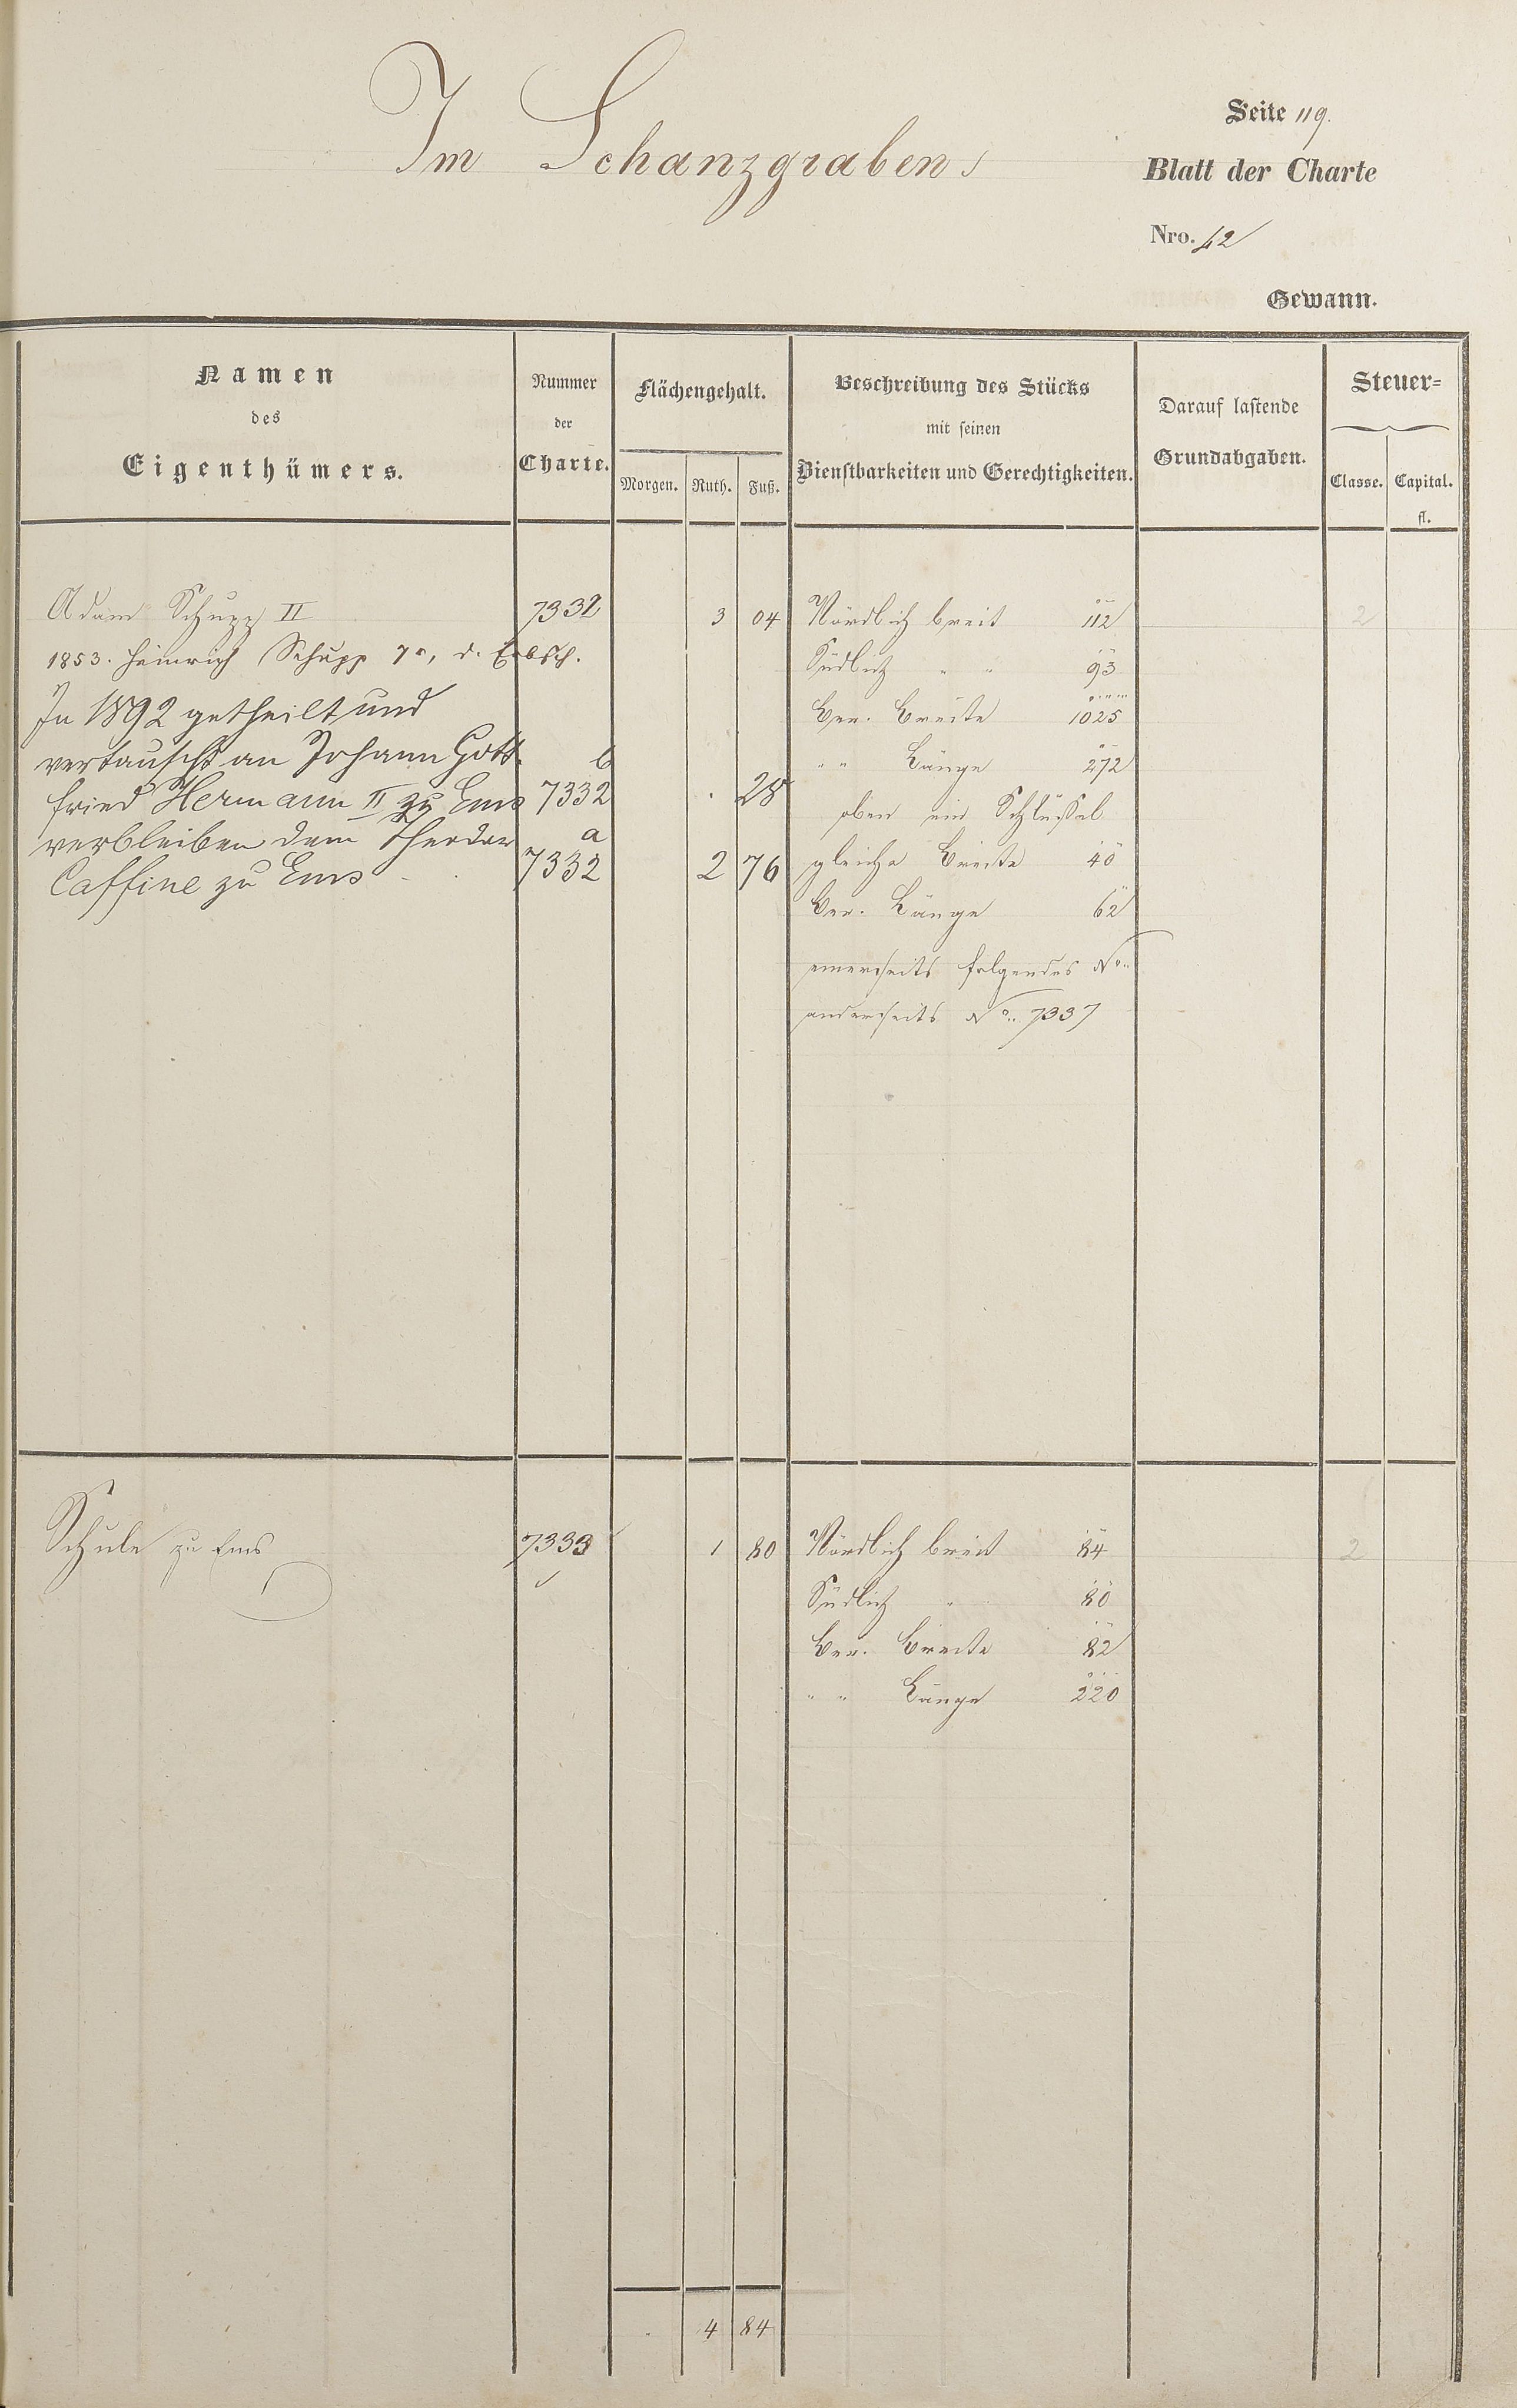 Im Schanzgraben
Seite 119.
Blatt der Charte
Nro. 42
Gewann.
Namen
des
Eigenthümers.
Nummer
der
Charte.
Flächengehalt.
Morgen. Ruth. Fuß.
Beschreibung des Stücks
mit seinen
Dienstbarkeiten und Gerechtigkeiten.
Darauf lastende
Grundabgaben.
Steuer=
Classe. Capital.
fl.
Adam Schupp II 7332 3 04 Nördlich breit 112 2
1853. Heinrich Schupp 7r, d. Erbsch. Südlich " " 93
In 1892 getheilt und Ber. Breite 1025
vertauscht an Johann Gott- b " " Länge 272
fried Hermann II zu Ems 7332 . 28 oben ein Schlüssel
verbleiben dem Theodor a gleiche Breite 40
Caffine zu Ems 7332 2 76
Ber. Länge 62
einerseits folgendes No.
anderseits No. 7337
Schule zu Ems 7333 1 80 Nördlich breit 84 2
Südlich " 80
Ber. Breite 82
" " Länge 220
4 84